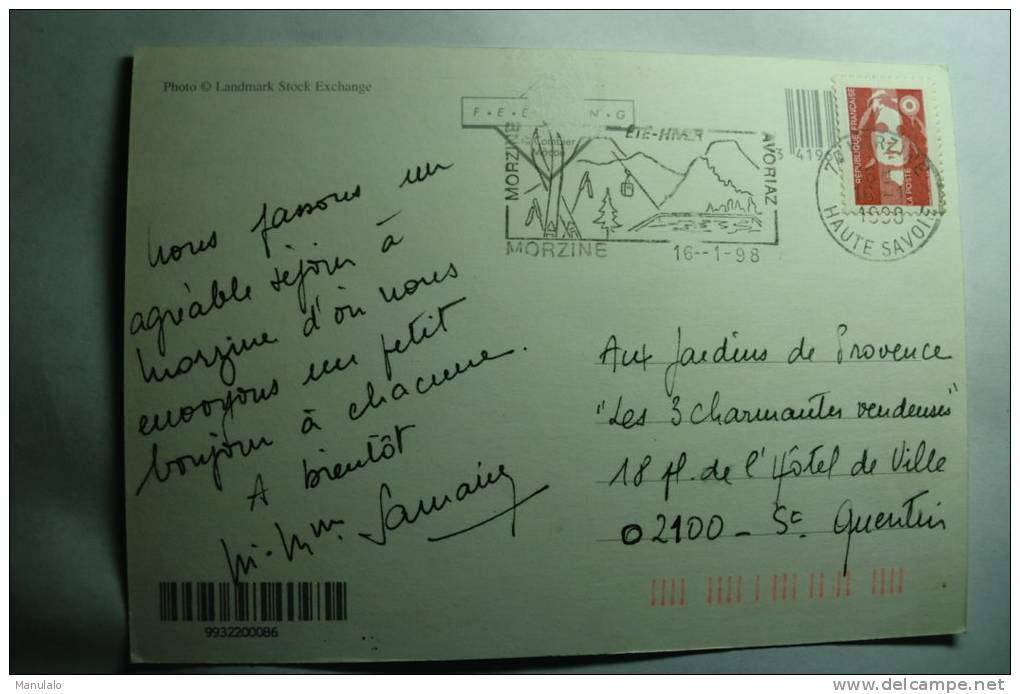 Photo © Landmark Stock Exchange
nous passons un
agréable séjour à
morzine d'où nous
envoyons un petit
bonjour à chacune.
A bientôt
M. Mme. Samain
MORZINE
ÉTÉ-HIVER
AVORIAZ
MORZINE
16--1-98
3 4196
RÉPUBLIQUE FRANÇAISE
LA POSTE
MORZINE
1998
HAUTE SAVOIE
Aux Jardins de Provence
"Les 3 charmantes vendeuses"
18 pl. de l'Hôtel de Ville
02100 - St Quentin
9932200086
Manulalo
delcampe.net